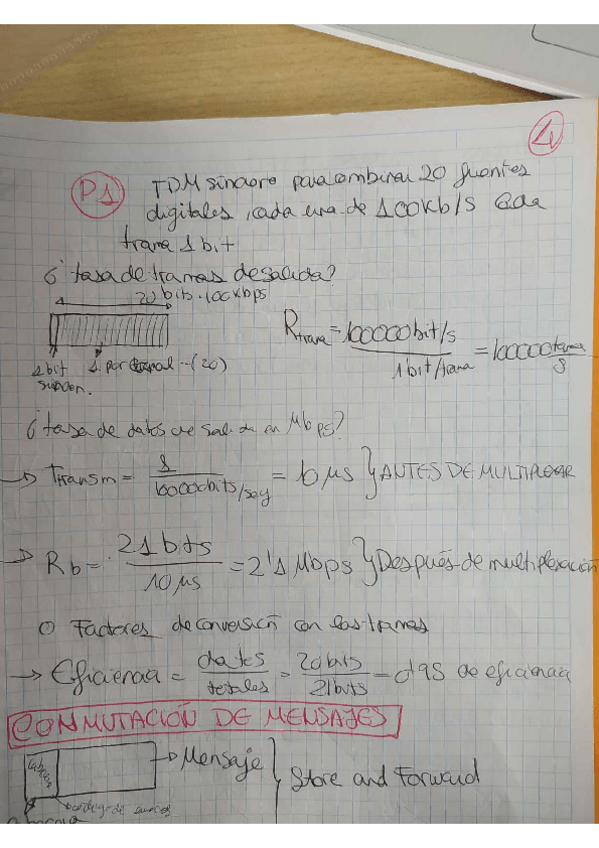 4
P1 TDM síncro para combinar 20 fuentes
digitales, cada una de 100Kb/S Cada
trama 1 bit
¿tasa de tramas de salida?
20 bits · 100Kbps
Rtrama = 100000bit/s / 1bit/trama = 100000 trama/s
1 bit 1 por canal --(20)
sincron.
¿tasa de datos de salida en Mbps?
→ Ttransm = 1 / 100000bits/seg = 10 µs } ANTES DE MULTIPLEXAR
→ Rb = 21 bits / 10 µs = 2'1 Mbps } Después de multiplexación
○ Factores de conversión con las tramas
→ Eficiencia = datos / totales = 20 bits / 21 bits = 0'95 de eficiencia
CONMUTACIÓN DE MENSAJES
→ Mensaje } Store and Forward